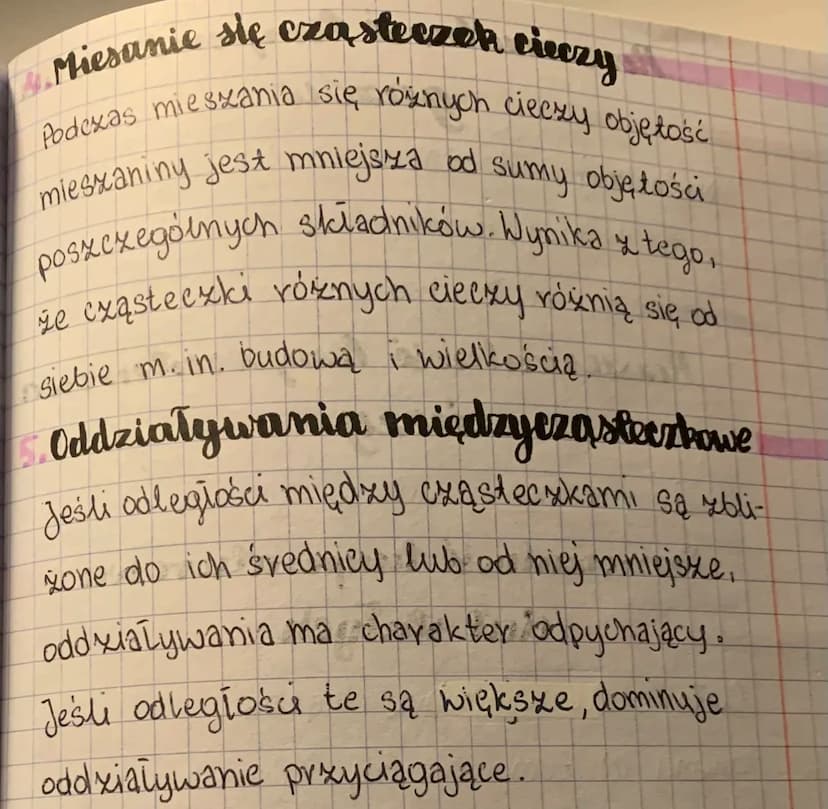 4. Miesanie się cząsteczek cieczy
Podczas mieszania się różnych cieczy objętość
mieszaniny jest mniejsza od sumy objętości
poszczególnych składników. Wynika z tego,
że cząsteczki różnych cieczy różnią się od
siebie m.in. budową i wielkością.
5. Oddziaływania międzycząsteczkowe
Jeśli odległości między cząsteczkami są zbli-
żone do ich średnicy lub od niej mniejsze,
oddziaływania ma charakter odpychający.
Jeśli odległości te są większe, dominuje
oddziaływanie przyciągające.